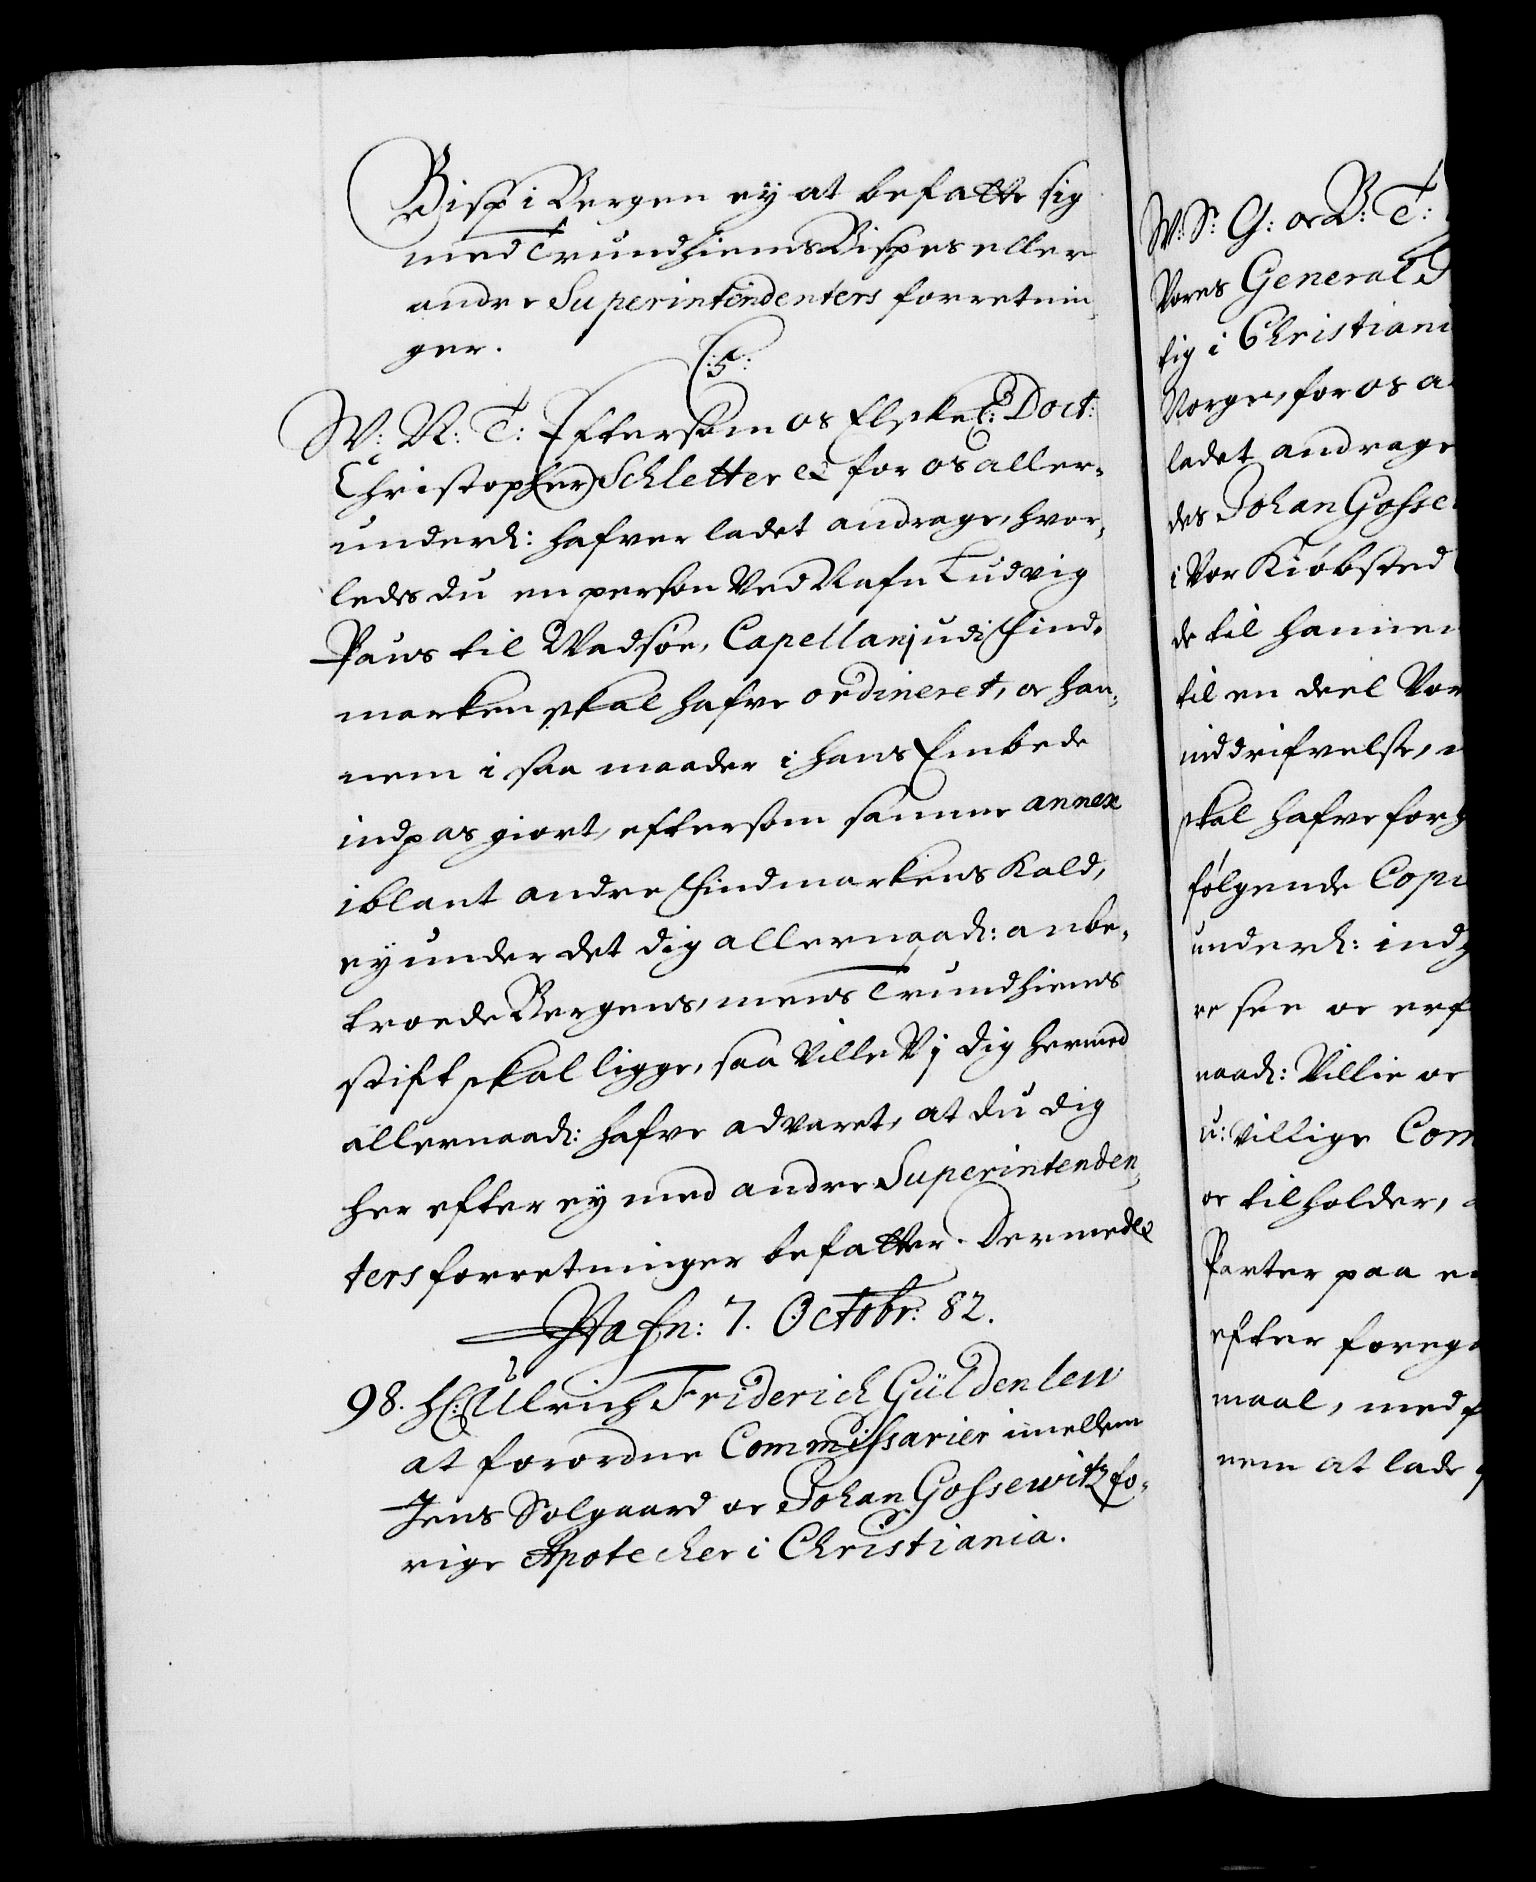 Bisp i Bergen ey at befatte sig
med Trundhiems Bispes eller
andre Superintendenters forretnin
ger.
C:5:
W: N: T: Eftersom os Elskel: Doct:
Christopher Schletter etc for os aller-
underd: hafver ladet andrage, hvor-
ledes du en person Ved Nafn Ludvig
Paus til Wadsøe, Capellanj udj Find-
marken skal hafve ordineret, oc han-
nem i saa maader i hans Embede
indpas giort, eftersom samme annex
iblant andre Findmarkens Kald,
ey under det dig allernaad: anbe-
troede Bergens, mens Trundhiems
stift skal ligge, saa Ville Vj dig hermed
allernaad: hafve advaret, at du dig
her efter ey med andre Superintenden-
ters forretninger befatter. Dermed etc
Hafn: 7. Octobr: 82.
98. H: Ulrich Friderich Güldenlew
at forordne Commissarier imellem
Jens Solgaard oc Johan Gossewitz fo-
rige Apotecker i Christiania.
W: S: G: oc B: T:
Vores General
tig i Christiani
Norge, for os a
ladet andrage
des Johan Gosse
i Vor Kiøbsted
de til hannem
til en deel Vor
inddrifvelse,
skal hafve forg
følgende Copi
underd: indg
re see oc erf
naad: Villie oc
u: villige Com
oc tilholder,
Parter paa
efter foreg
maal, med
nem at lade